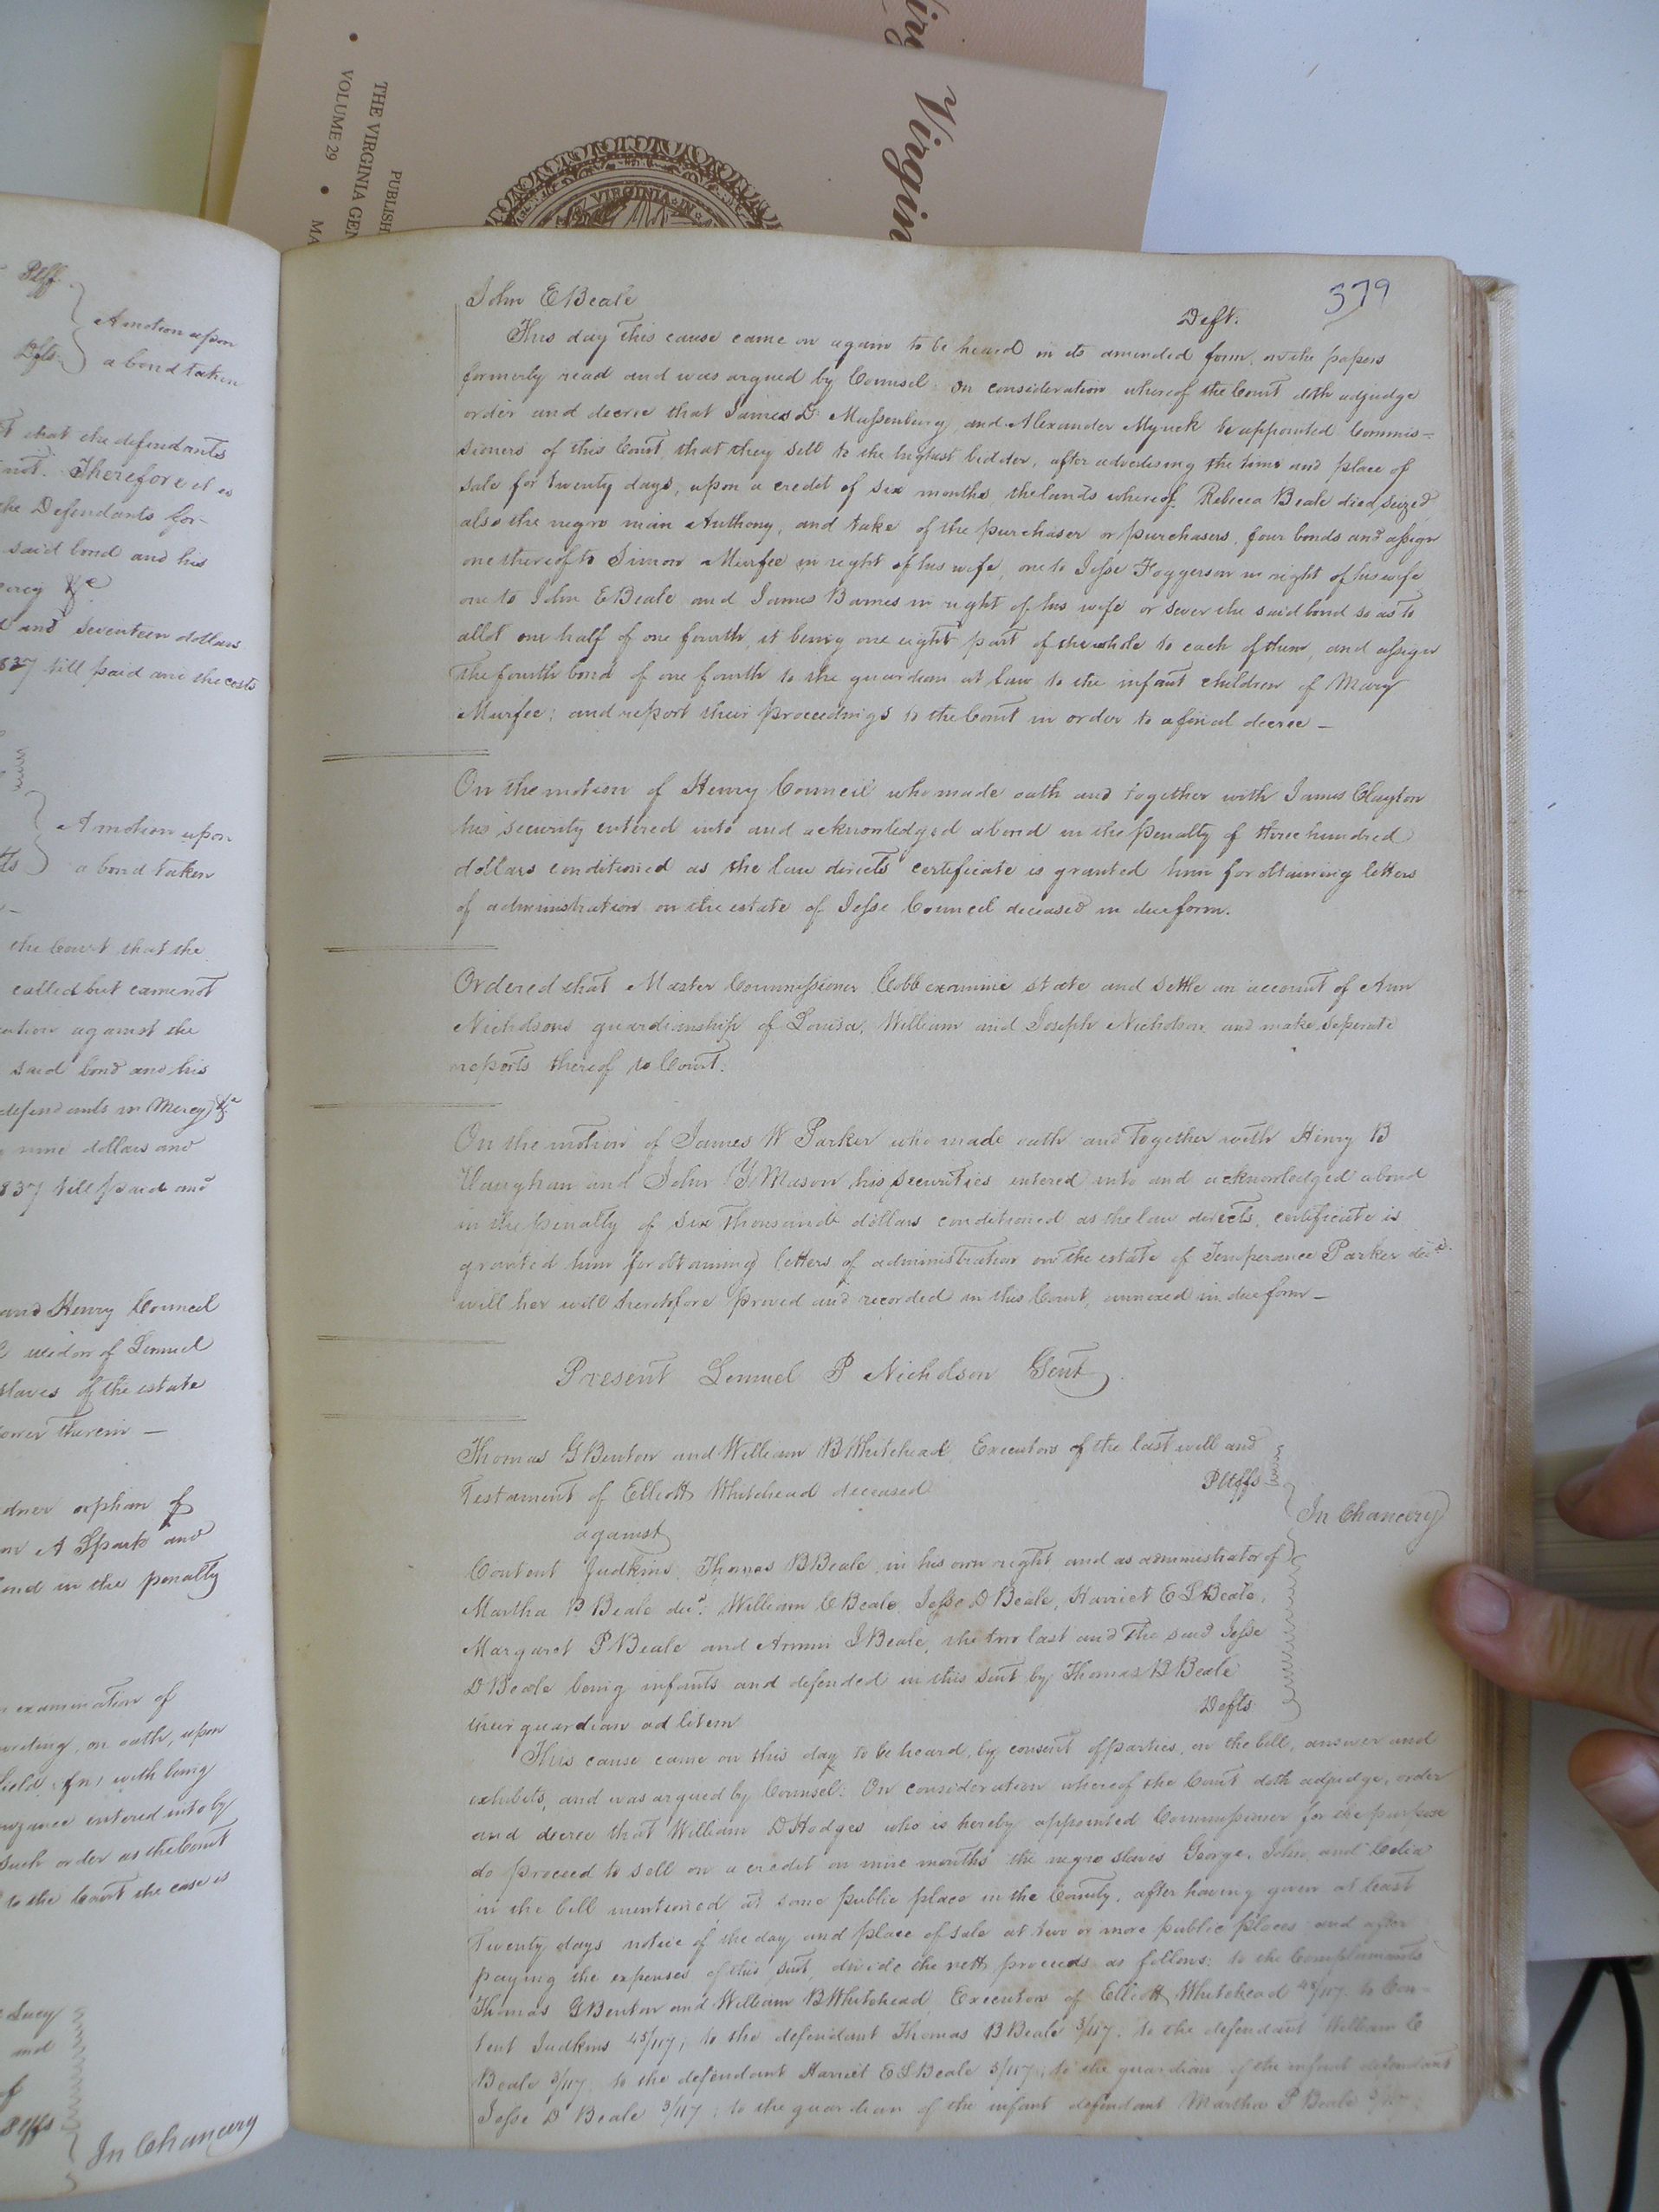 Virgin
THE VIRGINIA GEN
VOLUME 29 • MA
PUBLISH
VIRGINIA IN
Pltff.
A motion upon
Dfts.
a bond taken
that the defendants
not. Therefore it is
the Defendants for-
said bond and his
mercy &c
and seventeen dollars
1837 till paid and the costs
A motion upon
a bond taken
the Court that the
called but came not
against the
said bond and his
defendants in Mercy &c
nine dollars and
1837 till paid and
and Henry Council
widow of Lemuel
slaves of the estate
dower therein —
orphan of
A Spark and
bond in the penalty
examination of
on oath, upon
with being
entered into by
such order as the Court
to the Court the case is
Lucy
and
of
Pltffs
In Chancery
379
John E Beale
Deft.
This day this cause came on again to be heard in its amended form, on the papers
formerly read and was argued by Counsel: On consideration whereof the Court doth adjudge
order and decree that James D. Massenburg and Alexander Myrick be appointed Commis=
sioners of this Court, that they sell to the highest bidder, after advertising the time and place of
sale for twenty days, upon a credit of six months, the lands whereof Rebecca Beale died seized
also the negro man Anthony, and take of the purchaser or purchasers, four bonds and assign
one thereof to Simon Murfee in right of his wife, one to Jesse Foggerson in right of his wife
one to John E Beale and James Barnes in right of his wife or sever the said bond so as to
allot one half of one fourth, it being one eight part of the whole to each of them, and assign
the fourth bond of one fourth to the guardian at law to the infant children of Mary
Murfee; and report their proceedings to the Court in order to a final decree —
On the motion of Henry Council who made oath and together with James Clayton
his security entered into and acknowledged a bond in the penalty of three hundred
dollars conditioned as the law directs certificate is granted him for obtaining letters
of administration on the estate of Jesse Council deceased in due form.
Ordered that Master Commissioner Cobb examine state and settle an account of Ann
Nicholsons guardianship of Louisa, William and Joseph Nicholson and make seperate
reports thereof to Court.
On the motion of James W Parker who made oath and together with Henry B
Vaughan and John Y Mason his securities entered into and acknowledged a bond
in the penalty of six thousand dollars conditioned as the law directs, certificate is
granted him for obtaining letters of administration on the estate of Temperance Parker decd.
will her will theretofore proved and recorded in this Court, annexed in due form —
Present Lemuel P Nicholson Gent.
Thomas G Benton and William B Whitehead Executors of the last will and
Testament of Elliott Whitehead deceased
Pltffs
against
In Chancery
Content Judkins, Thomas B Beale, in his own right and as administrator of
Martha P Beale decd. William C Beale, Jesse D Beale, Harriet E L Beale,
Margaret P Beale and Ammi J Beale, the two last and the said Jesse
D Beale being infants and defended in this suit by Thomas B Beale
their guardian ad litem
Defts
This cause came on this day to be heard, by consent of parties, on the bill, answer and
exhibits, and was argued by Counsel: On consideration whereof the Court doth adjudge, order
and decree that William D Hodges who is hereby appointed Commissioner for the purpose
do proceed to sell on a credit on nine months the negro slaves George, John and Celia
in the bill mentioned at some public place in the County, after having given at least
Twenty days notice of the day and place of sale at two or more public places and after
paying the expenses of this suit, divide the nett proceeds as follows: to the Complainants
Thomas G Benton and William B Whitehead Executors of Elliott Whitehead 45/117. to Con-
tent Judkins 45/117; to the defendant Thomas B Beale 3/117. to the defendant William C
Beale 3/117. to the defendant Harriet E L Beale 3/117; to the guardian of the infant defendant
Jesse D Beale 3/117; to the guardian of the infant defendant Martha P Beale 3/117;